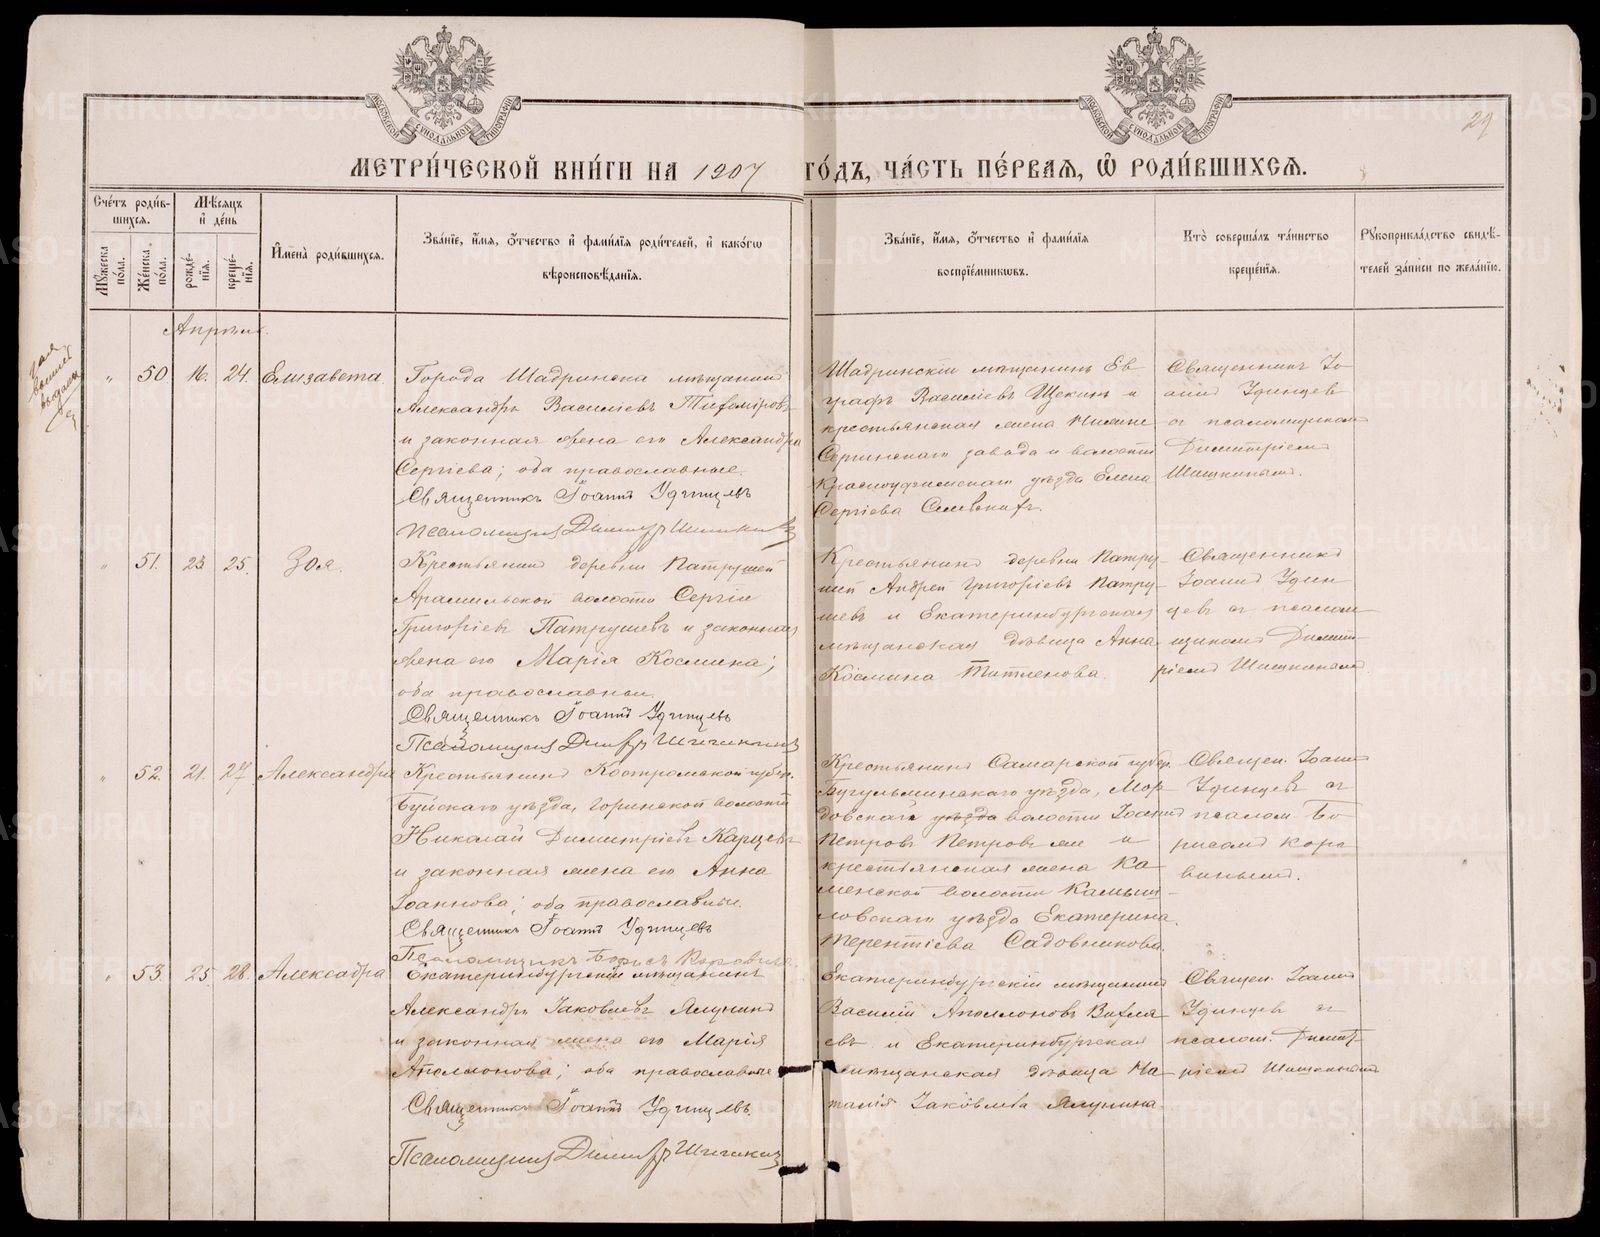 МОСКОВСКОЙ СУНОДАЛЬНОЙ ТИПОГРАФІИ
МОСКОВСКОЙ СУНОДАЛЬНОЙ ТИПОГРАФІИ
29
МЕТРИ́ЧЕСКОЙ КНИ́ГИ НА 1907 ГО́ДЪ, ЧА́СТЬ ПЕ́РВАЯ, Ѡ РОДИ́ВШИХСЯ.
Сче́тъ роди́в-
шихся.
Мꙋжеска по́ла.
Же́нска по́ла.
Мѣ́сяцъ
и де́нь
рожде́-
нїя.
креще́-
нїя.
И́мена̀ роди́вшихся.
Зва́нїе, и́мя, о́тчество и фами́лїя роди́телей, и како́гѡ
вѣроисповѣ́данїя.
Зва́нїе, и́мя, о́тчество и фами́лїя
воспрїе́мниковъ.
Кто̀ соверша́лъ та́инство
креще́нїя.
Рꙋкоприкла́дство свидѣ́-
телей за́писи по жела́нїю.
Апрѣль.
" 50 16. 24. Елизавета.
Города Шадринска мѣщанинъ
Александръ Василіевъ Тихоміровъ
и законная жена его Александра
Сергіева; оба православные.
Священникъ Іоаннъ Удинцевъ
Псаломщикъ Димитр Шишкинъ
Шадринскій мѣщанинъ Ев
графъ Василіевъ Щекинъ и
крестьянская жена Нижне
Сергинскаго завода и волости
Красноуфимскаго уѣзда Елена
Сергіева
Священникъ Іо-
аннъ Удинцев
съ псаломщиком
Димитріемъ
Шишкинымъ.
" 51. 23 25. Зоя.
Крестьянинъ деревни Патрушей
Арамильской волости Сергій
Григоріевъ Патрушевъ и законная
жена его Марія Космина;
оба православные.
Священникъ Іоаннъ Удинцевъ
Псаломщикъ Димитр Шишкинъ
Крестьянинъ деревни Патру-
шей Андрей Григоріевъ Патру-
шевъ и Екатеринбургская
мѣщанская дѣвица Анна
Космина Титленова.
Священникъ
Іоаннъ Удин
цевъ съ псалом
щикомъ Димит-
ріемъ Шишкинымъ
" 52. 21. 27. Александра
Крестьянинъ Костромской губер.
Буйскаго уѣзда, Горинской волости
Николай Димитріевъ Карцевъ
и законная жена его Анна
Іоаннова; оба православные.
Священникъ Іоаннъ Удинцевъ
Псаломщикъ Борисъ Коровинъ
Крестьянинъ Самарской губер.
Бугульминскаго уѣзда, Мор-
довской уѣзда волости Іоаннъ
Петровъ Петровъ же и
крестьянская жена Ка-
менской волости Камыш-
ловскаго уѣзда Екатерина
Терентіева Садовникова.
Священ. Іоаннъ
Удинцевъ съ
псалом. Бо
рисомъ Коро
винымъ.
" 53. 25. 28. Александра
Екатеринбургскій мѣщанинъ
Александръ Іаковлевъ Ялунинъ
и законная жена его Марія
Аполлонова; оба православные
Священникъ Іоаннъ Удинцевъ.
Псаломщикъ Димитр Шишкинъ
Екатеринбургскій мѣщанинъ
Василій Аполлоновъ Вахля
евъ и Екатеринбургская
мѣщанская дѣвица На-
талія Іаковлева Ялунина.
Священ. Іоаннъ
Удинцевъ съ
псалом. Димит-
ріемъ Шишкинымъ
METRIKI.GASO-URAL.RU